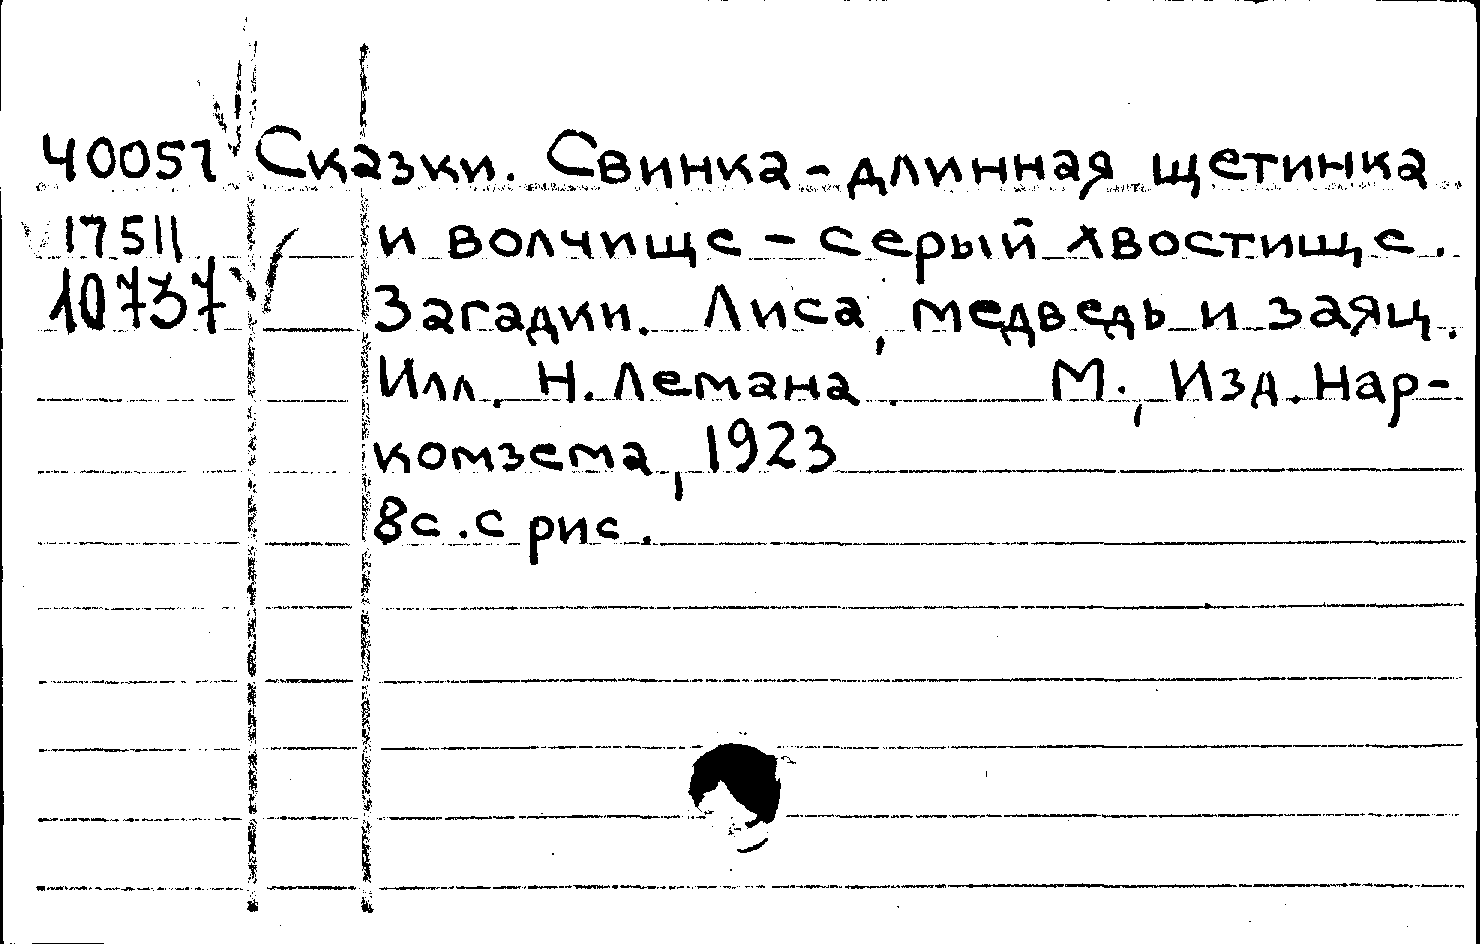 40051 Сказки. Свинка - длинная щетинка
17511 и волчище - серый хвостище.
10737 Загадки. Лиса, медведь и заяц.
Илл. Н. Лемана. М., Изд. Нар-
комзема, 1923
8с. с рис.